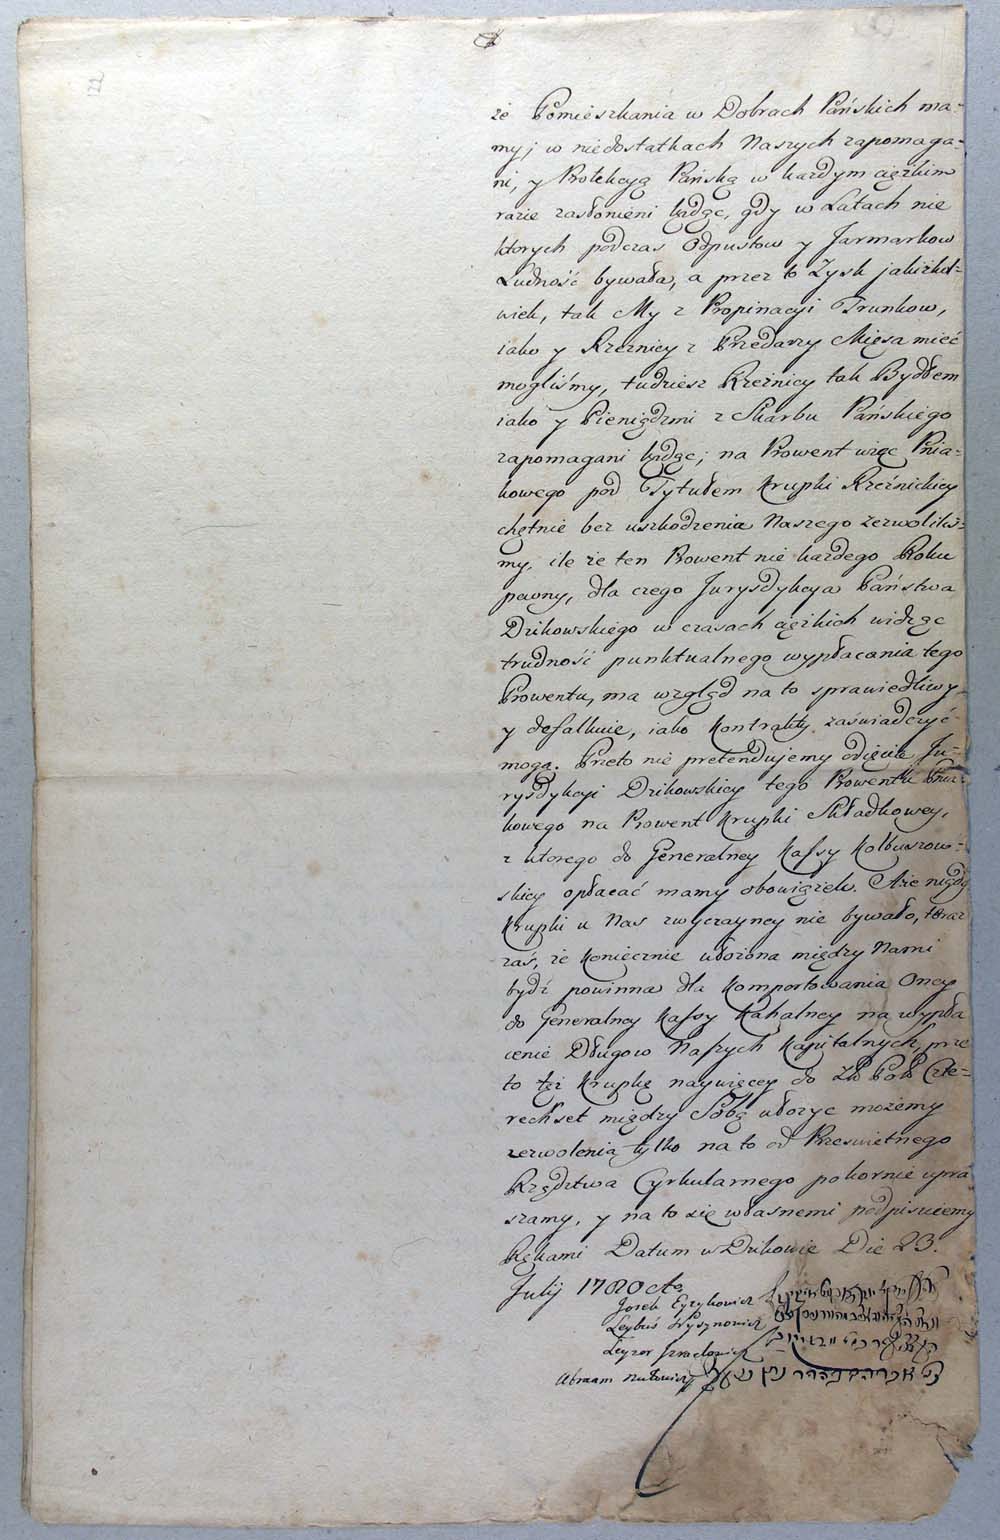 że Pomieszkania w Dobrach Pańskich ma-
my, w niedostatkach Naszych zapomaga-
ni, y Protekcyą Pańską w kazdym cięzkim
razie zasłonieni będąc, gdy w Latach nie
ktorych podczas Odpustow y Jarmarkow
Ludność bywała, a przez to Zysk jakiżkol-
wiek, tak My z Propinacyi Trunkow,
iako y Rzeznicy z Przedaży Mięsa mieć
mogliśmy, tudziesz Rzeźnicy tak Bydłem
iako y Pieniędzmi z Skarbu Pańskiego
zapomagani będąc; na Prowent więc Pnia-
kowego pod Tytułem Krupki Rzeźnickiey
chętnie bez uszkodzenia Naszego zezwoliliś-
my, ile że ten Prowent nie kazdego Roku
pewny, dla czego Jurysdykcya Państwa
Dzikowskiego w czasach cięzkich widząc
trudność punktualnego wypłacania tego
Prowentu, ma wzgląd na to sprawiedliwy
y defalkuie, iako Kontrakty zaświadczyć
mogą. Przeto nie pretendujemy odięcia Ju-
rysdykcyi Dzikowskiey tego Prowentu Pnia-
kowego na Prowent Krupki Składkowey,
z ktorego do Generalney Kassy Kolbuszow-
skiey opłacać mamy obowiązek. A że nigdy
Krupki u Nas zwyczayney nie bywało, teraz
zaś, że koniecznie ułożona między Nami
bydź powinna dla komportowania Oney
do Generalney Kassy Kahalney na wypła
cenie Długow Naszych Kapitalnych, prze
to też Krupkę naywięcey do Zł Pol Czte-
rechset między Sobą ułozyc możemy
zezwolenia tylko na to od Prześwietnego
Rządztwa Cyrkularnego pokornie upra
szamy, y na to się własnemi podpisuiemy
Rękami Datum w Dzikowie Die 23.
Julij 1780
Josek
Leybuś
Leyzor Izraelowicz
Abraam